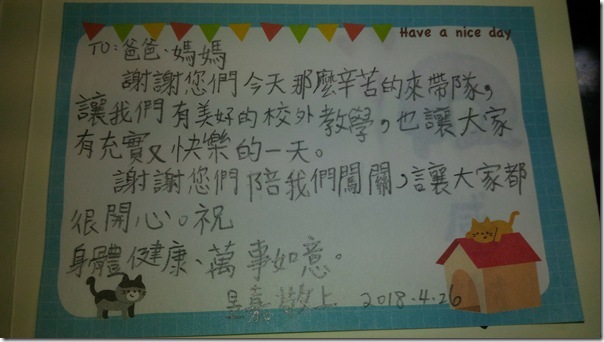 Have a nice day
TO：爸爸、媽媽
謝謝您們今天那麼辛苦的來帶隊，
讓我們有美好的校外教學，也讓大家
有充實又快樂的一天。
謝謝您們陪我們闖關，讓大家都
很開心。祝
身體健康、萬事如意。
昱嘉敬上 2018.4.26